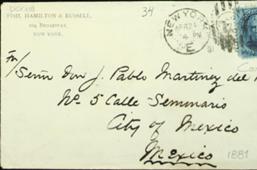 34
POST, HAMILTON & RUSSELL,
109 BROADWAY,
NEW YORK.
NEW YORK
4 PM
E
Senor Don J. Pablo Martinez del
No. 5 Calle Seminario
City of Mexico
Mexico
1881